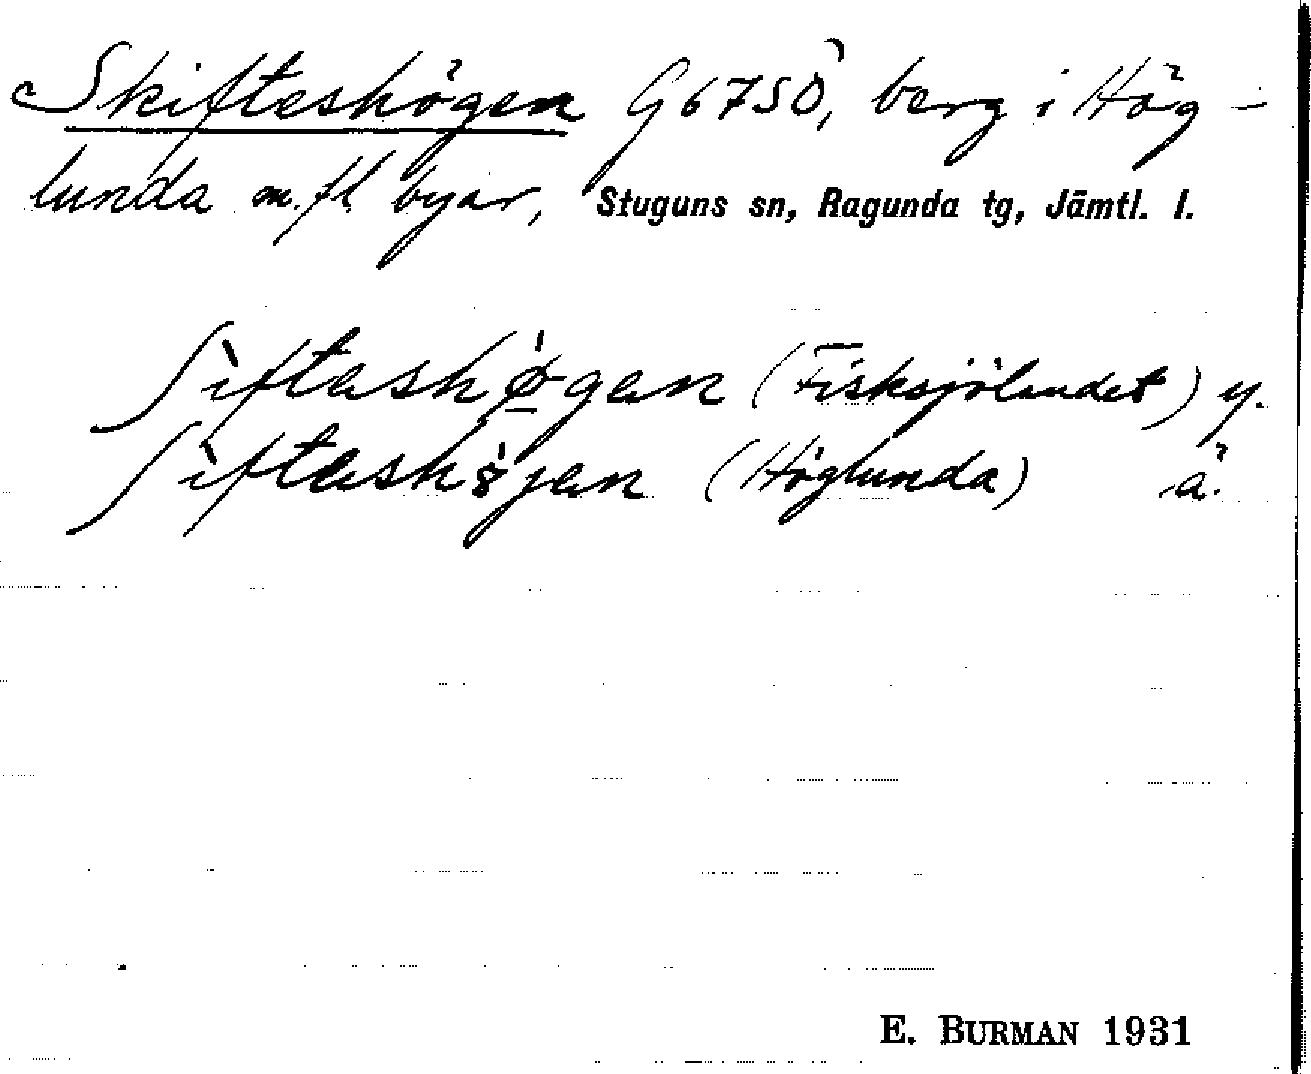 Skifteshögen G67SÖ, berg i Hög-
lunda m.fl. byar, Stuguns sn, Ragunda tg, Jämtl. l.
ʃìftashø̀gan (Fisksjölandet) y.
ʃìftashøjan (Höglunda) ä.
E. BURMAN 1931